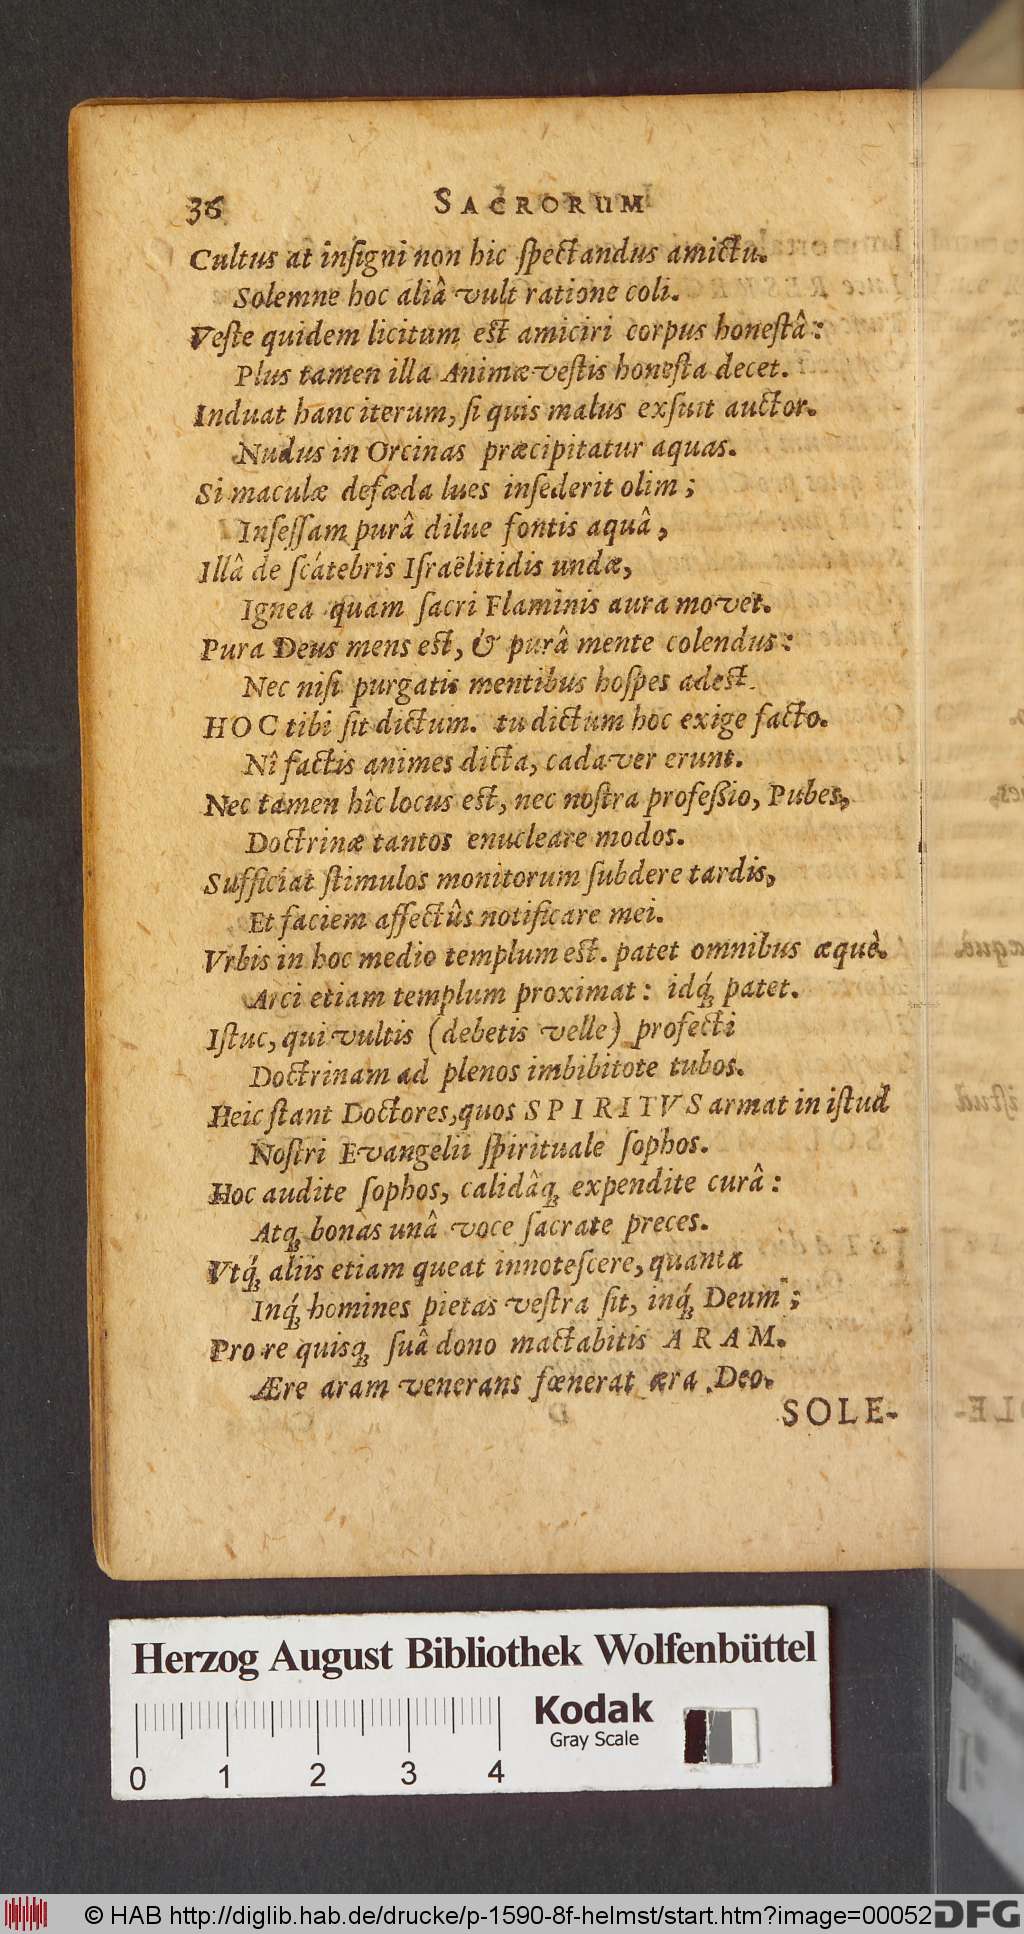 36 SACRORUM
Cultus at inſigni non hic ſpectandus amictu.
Solemne hoc aliâ vult ratione coli.
Veſte quidem licitum eſt amiciri corpus honeſtâ:
Plus tamen illa Animæ veſtis honeſta decet.
Induat hanc iterum, ſi quis malus exſuit auctor.
Nudus in Orcinas præcipitatur aquas.
Si maculæ defæda lues inſederit olim;
Inſeſſam purâ dilue fontis aquâ,
Illâ de ſcátebris Iſraëlitidis undæ,
Ignea quam ſacri Flaminis aura movet.
Pura Deus mens eſt, & purâ mente colendus:
Nec niſi purgatis mentibus hoſpes adeſt.
HOC tibi ſit dictum. tu dictum hoc exige facto.
Nî factis animes dicta, cadaver erunt.
Nec tamen hîc locus eſt, nec noſtra profeſsio, Pubes,
Doctrinæ tantos enucleare modos.
Sufficiat ſtimulos monitorum ſubdere tardis,
Et faciem affectûs notificare mei.
Vrbis in hoc medio templum eſt. patet omnibus æquè.
Arci etiam templum proximat: idq́; patet.
Iſtuc, qui vultis (debetis velle) profecti
Doctrinam ad plenos imbibitote tubos.
Heic ſtant Doctores, quos SPIRITVS armat in iſtud
Noſtri Evangelii ſpirituale ſophos.
Hoc audite ſophos, calidâq; expendite curâ:
Atq; bonas unâ voce ſacrate preces.
Vtq́; aliis etiam queat innoteſcere, quanta
Inq́; homines pietas veſtra ſit, inq́; Deum;
Pro re quisq; ſuâ dono mactabitis ARAM.
Ære aram venerans fœnerat æra Deo.
SOLE-
Herzog August Bibliothek Wolfenbüttel
Kodak
Gray Scale
0 1 2 3 4
© HAB http://diglib.hab.de/drucke/p-1590-8f-helmst/start.htm?image=00052
DFG